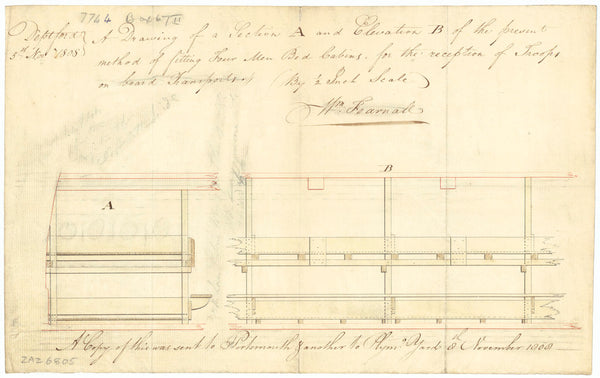 7764
Deptford
5th Nov 1808
A Drawing of a Section A and Elevation B of the present
method of fitting Four Men Bed Cabins, for the reception of Troops
on board Transports. By ½ Inch Scale
Wm Fearnall
A
B
A Copy of this was sent to Portsmouth & another to Plymo Yard 8th November 1808
ZAZ6805